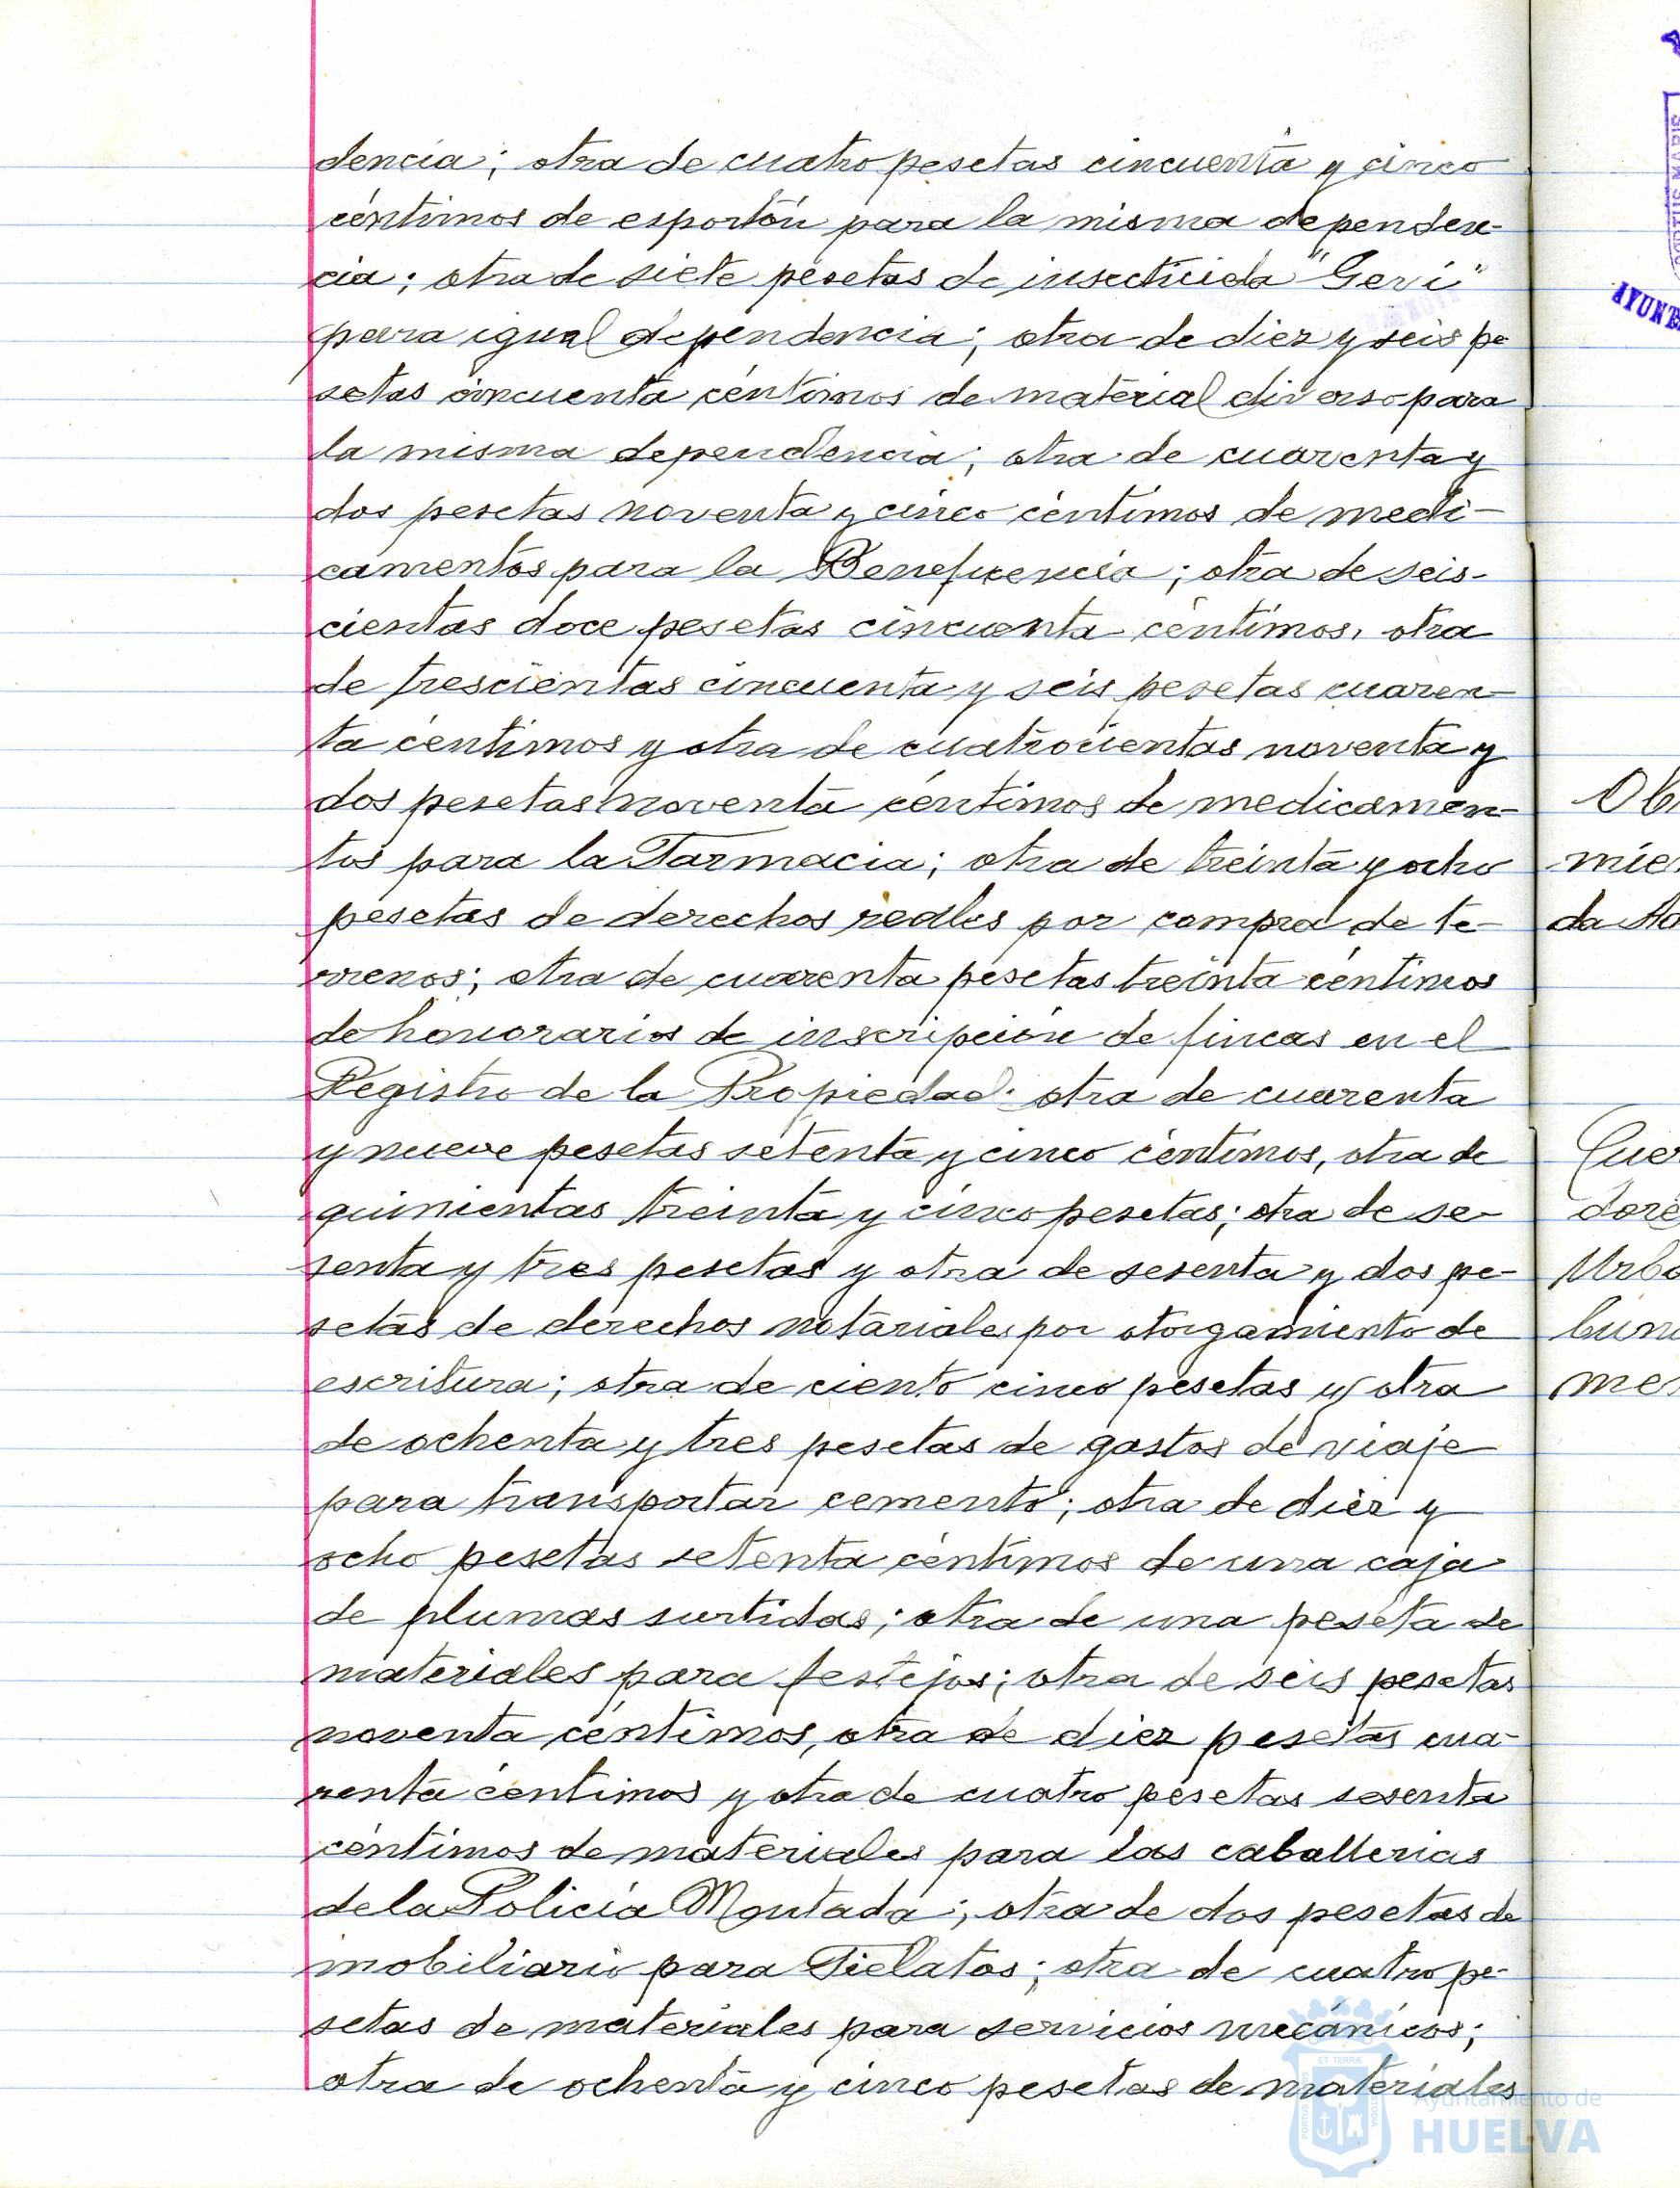 dencia; otra de cuatro pesetas cincuenta y cinco
céntimos de esportón para la misma dependen-
cia; otra de siete pesetas de insecticida "Gevi"
para igual dependencia; otra de diez y seis pe-
setas cincuenta céntimos de material diverso para
la misma dependencia; otra de cuarenta y
dos pesetas noventa y cinco céntimos de medi-
camentos para la Beneficencia; otra de seis-
cientas doce pesetas cincuenta céntimos, otra
de trescientas cincuenta y seis pesetas cuaren-
ta céntimos y otra de cuatrocientas noventa y
dos pesetas noventa céntimos de medicamen-
tos para la Farmacia; otra de treinta y ocho
pesetas de derechos reales por compra de te-
rrenos; otra de cuarenta pesetas treinta céntimos
de honorarios de inscripción de fincas en el
Registro de la Propiedad; otra de cuarenta
y nueve pesetas setenta y cinco céntimos, otra de
quinientas treinta y cinco pesetas; otra de se-
senta y tres pesetas y otra de sesenta y dos pe-
setas de derechos notariales por otorgamiento de
escritura; otra de ciento cinco pesetas y otra
de ochenta y tres pesetas de gastos de viaje
para transportar cemento; otra de diez y
ocho pesetas setenta céntimos de una caja
de plumas surtidas; otra de una peseta de
materiales para festejos; otra de seis pesetas
noventa céntimos, otra de diez pesetas cua-
renta céntimos y otra de cuatro pesetas sesenta
céntimos de materiales para las caballerias
de la Policía Montada; otra de dos pesetas de
mobiliario para Fielatos; otra de cuatro pe-
setas de materiales para servicios mecánicos;
otra de ochenta y cinco pesetas de materiales
mie
da
dore
Urba
me
PORTUS MARIS
AYUN
ET TERRÆ
Ayuntamiento de
HUELVA